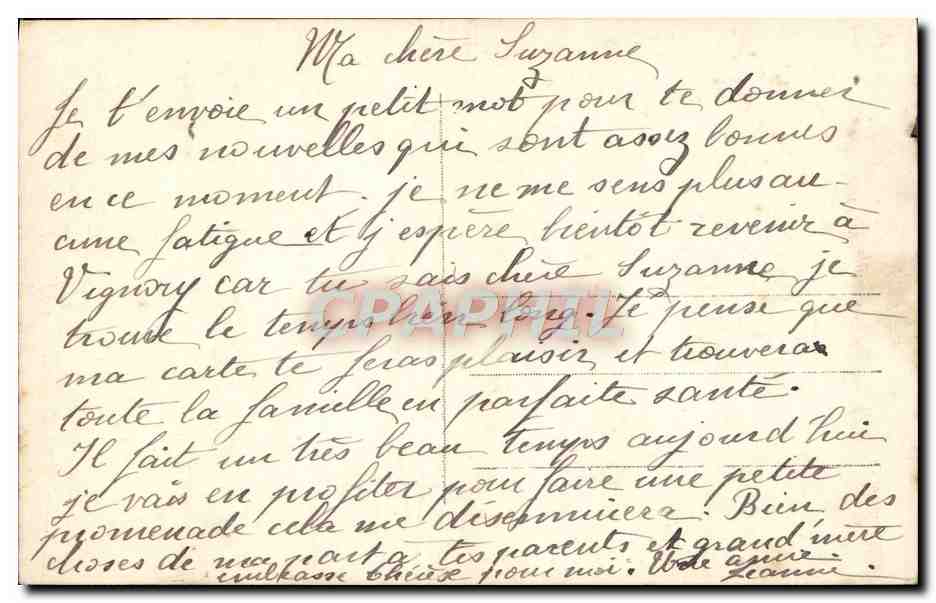 Ma chère Suzanne
Je t'envoie un petit mot pour te donner
de mes nouvelles qui sont assez bonnes
en ce moment. je ne me sens plus au-
cune fatigue et j'espère bientôt revenir à
Vignory car tu sais chère Suzanne je
trouve le temps bien long. Je pense que
ma carte te feras plaisir et trouvera
toute la famille en parfaite santé.
Il fait un très beau temps aujourd'hui
je vais en profiter pour faire une petite
promenade cela me désennuiera. Bien des
choses de ma part à tes parents et grand'mère
embrasse Thérèse pour moi. Une amie
Jeanne.
CPAPHIL